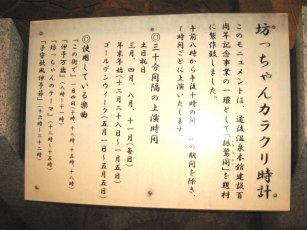 坊っちゃんカラクリ時計
このモニュメントは、道後温泉本館建設百
周年記念事業の一環として「振鷺閣」を題材
に製作致しました。
午前八時から午後十時の間
の瞬間を除き、
一時間ごとに上演いたします。
◎三十分間隔の上演時間
土日祝日
三月、四月、八月、十一月(毎日)
年末年始(十二月二十八日~一月五日)
ゴールデンウィーク(五月一日~五月五日)
◎使用している楽曲
「この街で」
「伊予万歳」(八時~十時)
「坊っちゃんのテーマ」(十一時~十五時)
「子守歌風伊予節」(十六時~二十二時)